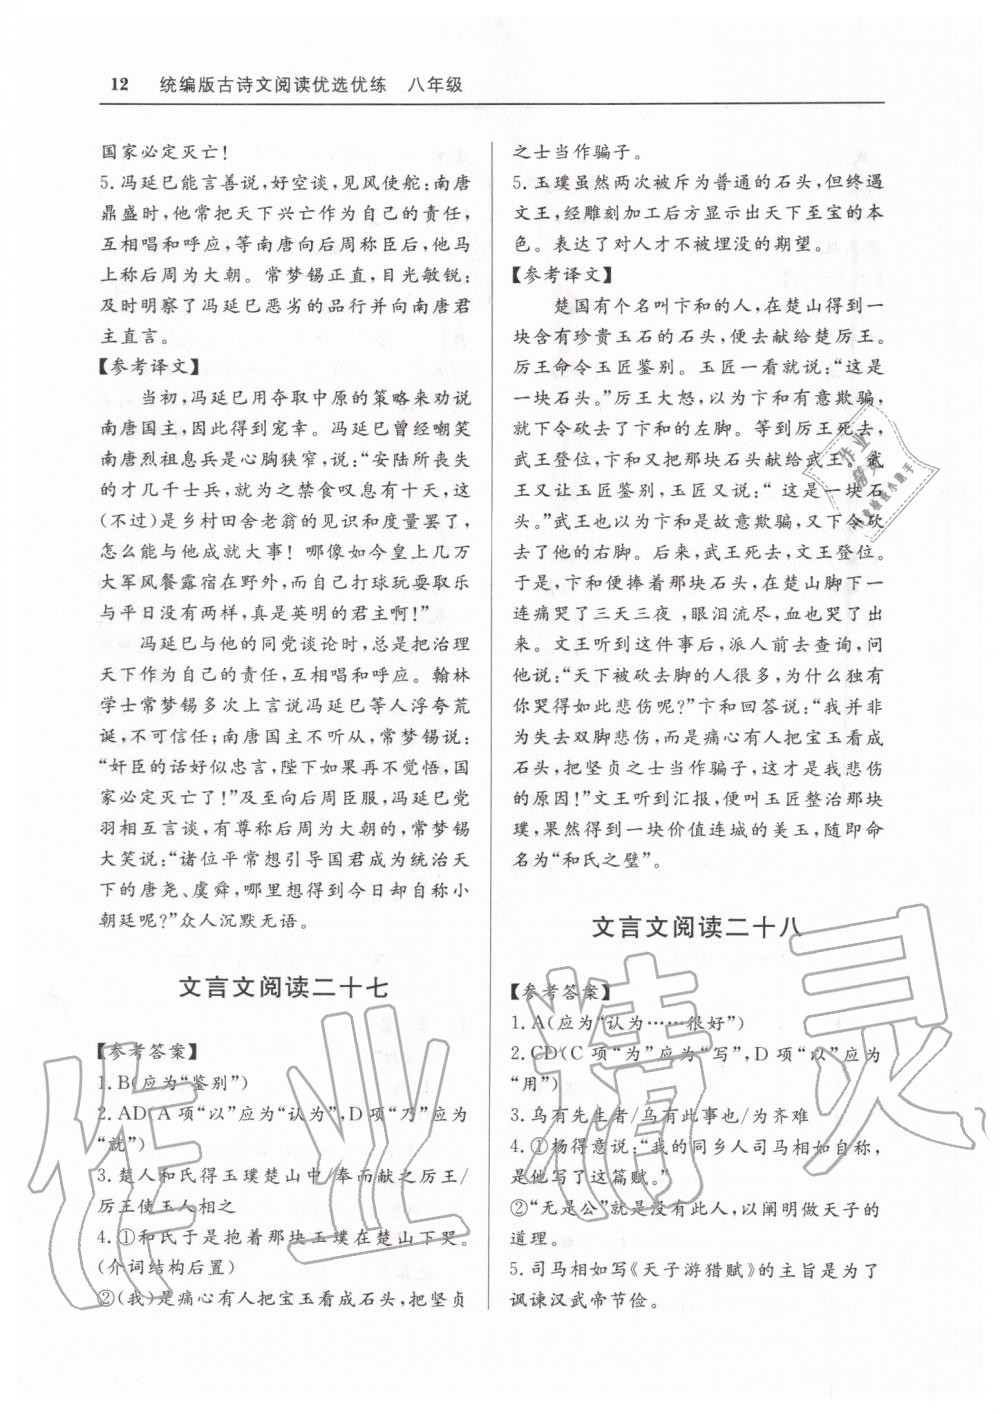 12 统编版古诗文阅读优选优练 八年级
国家必定灭亡!
5. 冯延巳能言善说,好空谈,见风使舵:南唐
鼎盛时,他常把天下兴亡作为自己的责任,
互相唱和呼应,等南唐向后周称臣后,他马
上称后周为大朝。常梦锡正直,目光敏锐:
及时明察了冯延巳恶劣的品行并向南唐君
主直言。
【参考译文】
当初,冯延巳用夺取中原的策略来劝说
南唐国主,因此得到宠幸。冯延巳曾经嘲笑
南唐烈祖息兵是心胸狭窄,说:“安陆所丧失
的才几千士兵,就为之禁食叹息有十天,这
(不过)是乡村田舍老翁的见识和度量罢了,
怎么能与他成就大事!哪像如今皇上几万
大军风餐露宿在野外,而自己打球玩耍取乐
与平日没有两样,真是英明的君主啊!”
冯延巳与他的同党谈论时,总是把治理
天下作为自己的责任,互相唱和呼应。翰林
学士常梦锡多次上言说冯延巳等人浮夸荒
诞,不可信任;南唐国主不听从,常梦锡说:
“奸臣的话好似忠言,陛下如果再不觉悟,国
家必定灭亡了!”及至向后周臣服,冯延巳党
羽相互言谈,有尊称后周为大朝的,常梦锡
大笑说:“诸位平常想引导国君成为统治天
下的唐尧、虞舜,哪里想得到今日却自称小
朝廷呢?”众人沉默无语。
文言文阅读二十七
【参考答案】
1. B(应为“鉴别”)
2. AD(A 项“以”应为“认为”,D 项“乃”应为
“就”)
3. 楚人和氏得玉璞楚山中/奉而献之厉王/
厉王使玉人相之
4. ①和氏于是抱着那块玉璞在楚山下哭。
(介词结构后置)
②(我)是痛心有人把宝玉看成石头,把坚贞
之士当作骗子。
5. 玉璞虽然两次被斥为普通的石头,但终遇
文王,经雕刻加工后方显示出天下至宝的本
色。表达了对人才不被埋没的期望。
【参考译文】
楚国有个名叫卞和的人,在楚山得到一
块含有珍贵玉石的石头,便去献给楚厉王。
厉王命令玉匠鉴别。玉匠一看就说:“这是
一块石头。”厉王大怒,以为卞和有意欺骗,
就下令砍去了卞和的左脚。等到厉王死去,
武王登位,卞和又把那块石头献给武王。武
王又让玉匠鉴别,玉匠又说:“这是一块石
头。”武王也以为卞和是故意欺骗,又下令砍
去了他的右脚。后来,武王死去,文王登位。
于是,卞和便捧着那块石头,在楚山脚下一
连痛哭了三天三夜,眼泪流尽,血也哭了出
来。文王听到这件事后,派人前去查询,问
他说:“天下被砍去脚的人很多,为什么独有
你哭得如此悲伤呢?”卞和回答说:“我并非
为失去双脚悲伤,而是痛心有人把宝玉看成
石头,把坚贞之士当作骗子,这才是我悲伤
的原因!”文王听到汇报,便叫玉匠整治那块
璞,果然得到一块价值连城的美玉,随即命
名为“和氏之璧”。
文言文阅读二十八
【参考答案】
1. A(应为“认为……很好”)
2. CD(C 项“为”应为“写”,D 项“以”应为
“用”)
3. 乌有先生者/乌有此事也/为齐难
4. ①杨得意说:“我的同乡人司马相如自称,
是他写了这篇赋。”
②“无是公”就是没有此人,以阐明做天子的
道理。
5. 司马相如写《天子游猎赋》的主旨是为了
讽谏汉武帝节俭。
作业精灵
作业精灵